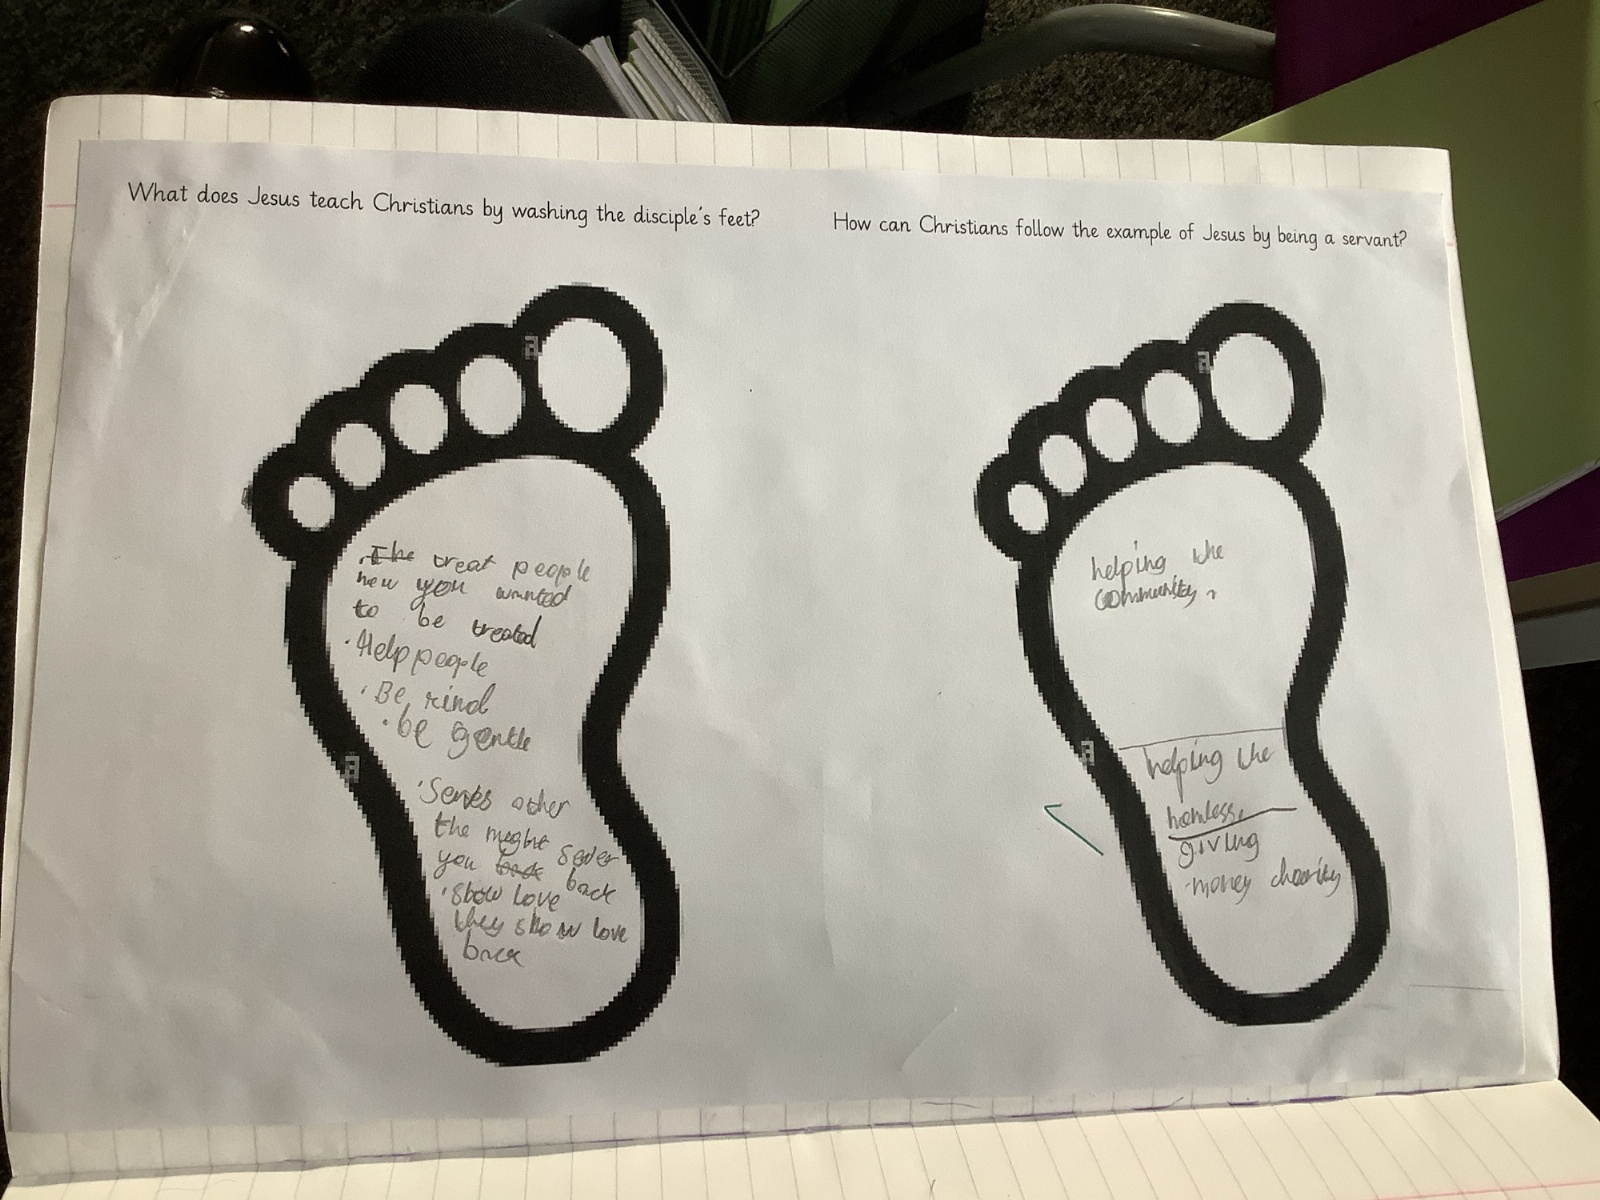 What does Jesus teach Christians by washing the disciple's feet?
The treat people
how you wanted
to be treated
· Help people
· Be kind
· be gentle
· Serves other
the meght sever
you back back
· Show love
they show love
back
How can Christians follow the example of Jesus by being a servant?
helping the
community,
helping the
homless,
giving
money charity